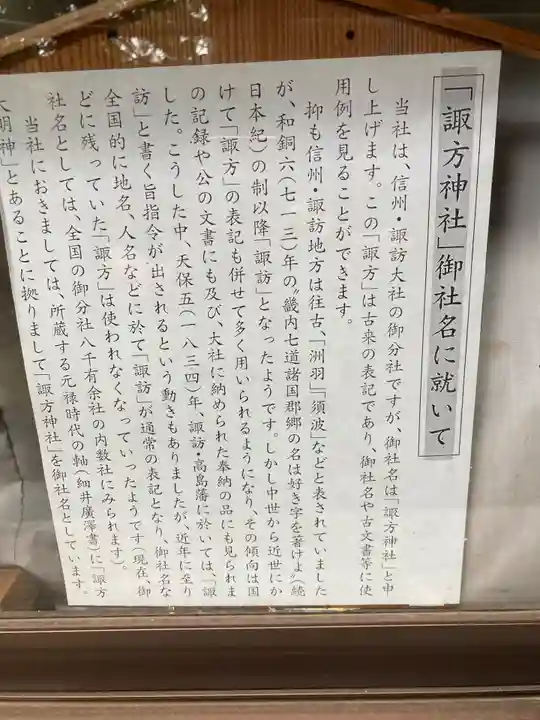 「諏方神社」御社名に就いて
当社は、信州・諏訪大社の御分社ですが、御社名は「諏方神社」と申
し上げます。この「諏方」は古来の表記であり、御社名や古文書等に使
用例を見ることができます。
抑も信州・諏訪地方は往古、「洲羽」「須波」などと表されていました
が、和銅六(七一三)年の〝畿内七道諸国郡郷の名は好き字を著けよ〟(続
日本紀)の制以降「諏訪」となったようです。しかし中世から近世にか
けて「諏方」の表記も併せて多く用いられるようになり、その傾向は国
の記録や公の文書にも及び、大社に納められた奉納の品にも見られま
した。こうした中、天保五(一八三四)年、諏訪・高島藩に於いては、「諏
訪」と書く旨指令が出されるという動きもありましたが、近年に至り
全国的に地名、人名などに於て「諏訪」が通常の表記となり、御社名な
どに残っていた「諏方」は使われなくなっていったようです(現在、御
社名としては、全国の御分社八千有余社の内数社にみられます)。
当社におきましては、所蔵する元禄時代の軸(細井廣澤書)に「諏方
大明神」とあることに拠りまして「諏方神社」を御社名としています。